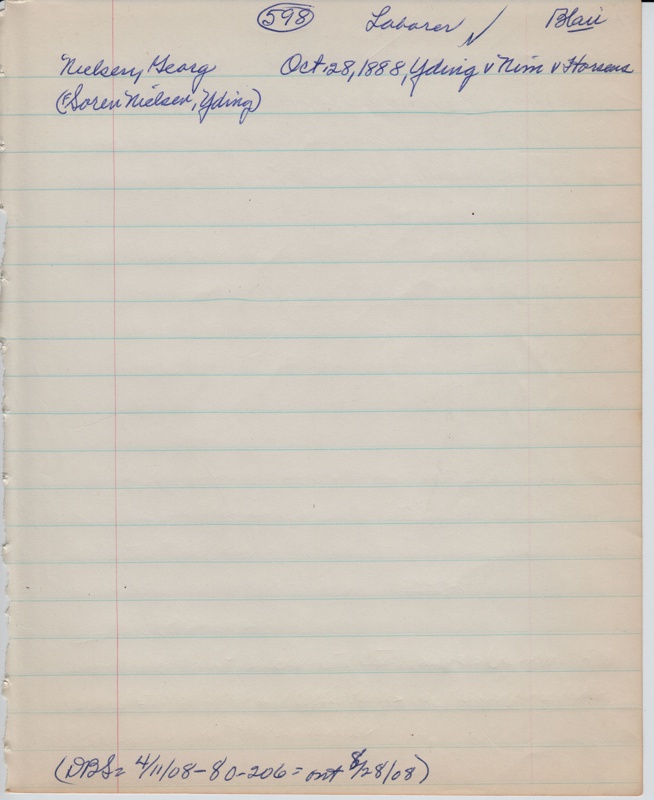 598 Laborer ✓ Blair
Nielsen, Georg Oct. 28, 1888, Yding v Nim v Horsens
(F Soren Nielsen, Yding)
(DBS= 4/11/08-80-206= ont 8/28/08)